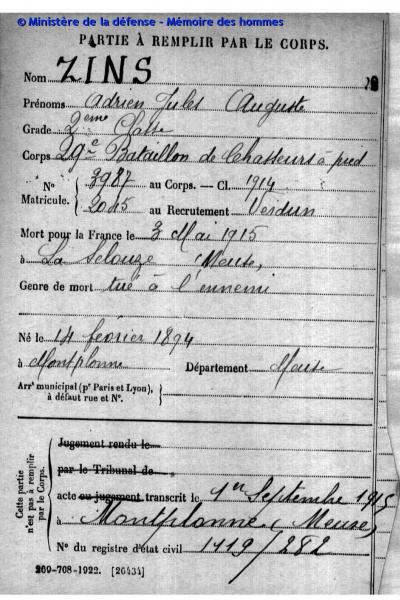 © Ministère de la défense - Mémoire des hommes
PARTIE À REMPLIR PAR LE CORPS.
Nom ZINS
Prénoms Adrien Jules Auguste
Grade 2eme Classe
Corps 29e Bataillon de Chasseurs à pied
N° Matricule. { 3987 au Corps. — Cl. 1914
2045 au Recrutement Verdun
Mort pour la France le 3 Mai 1915
à La Selouze (Meuse)
Genre de mort tué à l'ennemi
Né le 14 février 1894
à Montplonne Département Meuse
Arrt municipal (pr Paris et Lyon), à défaut rue et N°. }
Cette partie n'est pas à remplir par le Corps.
Jugement rendu le
par le Tribunal de
acte ou jugement transcrit le 1er Septembre 1915
à Montplonne (Meuse)
N° du registre d'état civil 1119/282
269-708-1922. [26434]